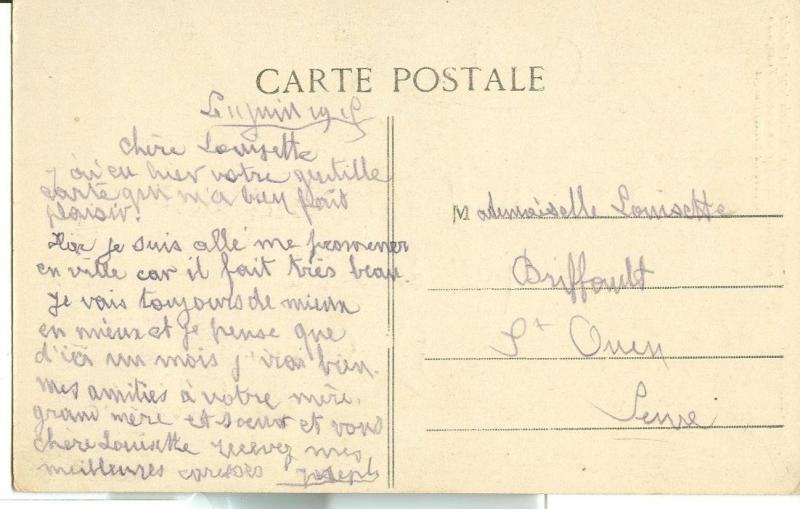 CARTE POSTALE
Le 11 juin 1915
Chère Louisette
J'ai eu hier votre gentille
carte qui m'a bien fait
plaisir.
Hier je suis allé me promener
en ville car il fait très beau.
Je vais toujours de mieux
en mieux et je pense que
d'ici un mois j'irai bien.
Mes amitiés à votre mère,
grand mère et soeur et vous
chère Louisette recevez mes
meilleures caresses Joseph
Mademoiselle Louisette
Briffault
St Ouen
Seine